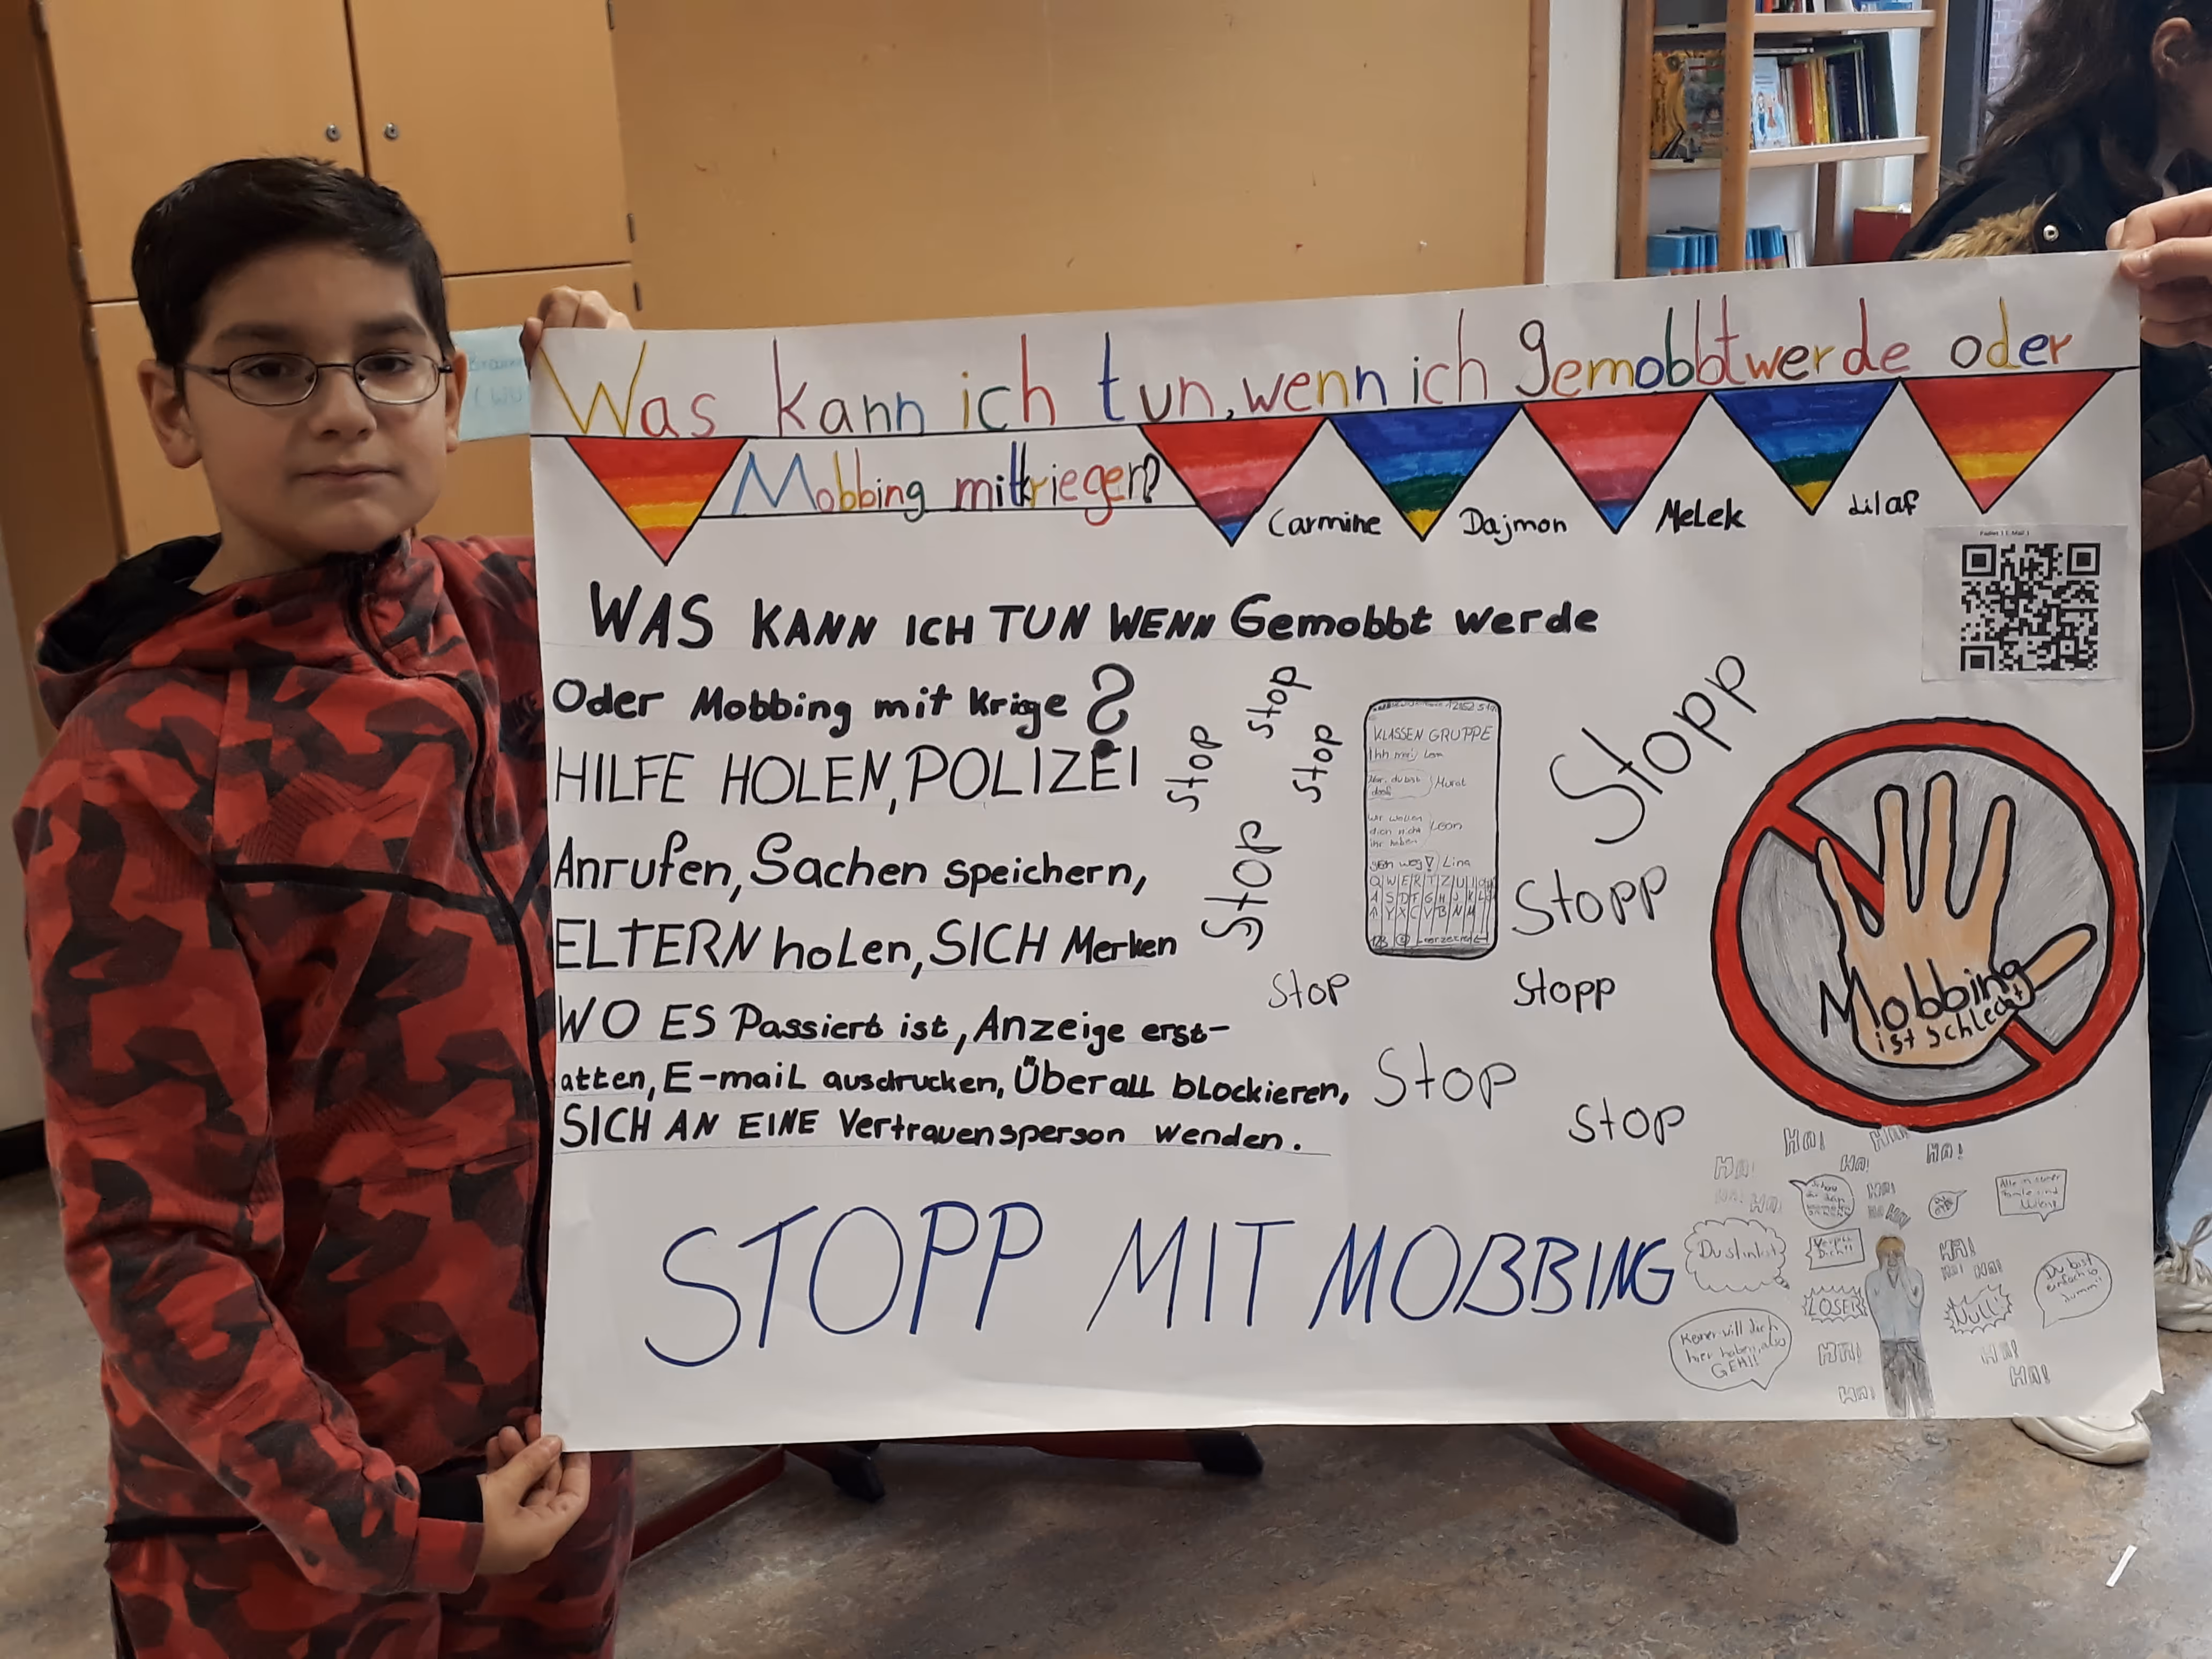 Was kann ich tun, wenn ich gemobbt werde oder
Mobbing mitkriegen?
Carmine Dajmon Melek Lilaf
WAS KANN ICH TUN WENN Gemobbt werde
Oder Mobbing mit krige ?
HILFE HOLEN, POLIZEI
Anrufen, Sachen speichern,
ELTERN holen, SICH Merken
WO ES Passiert ist, Anzeige erst-
atten, E-mail ausdrucken, Überall blockieren,
SICH AN EINE Vertrauensperson wenden.
STOPP MIT MOBBING
Stop
Stop
Stop
Stop
Stop
Stop
Stop
Stopp
Stopp
Stopp
KLASSEN GRUPPE
du bist
doof Murat
wir wollen
dich nicht Leon
haben
geh weg! Lina
Q W E R T Z U I
A S D F G H J K L
Y X C V B N M
Mobbing
ist schlecht
HA!
HA!
HA!
HA!
HA!
HA!
Du stinkst
Verpiss
Dich!!
LOSER
Null
Du bist
einfach so
dumm!!
Keiner will dich
hier haben, also
GEH!!
HA!
HA!
HA!
HA!
HA!